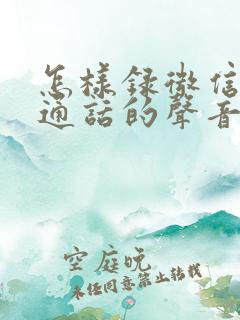 怎樣録微信
通話的聲音
空庭晚
未经同意禁止转载